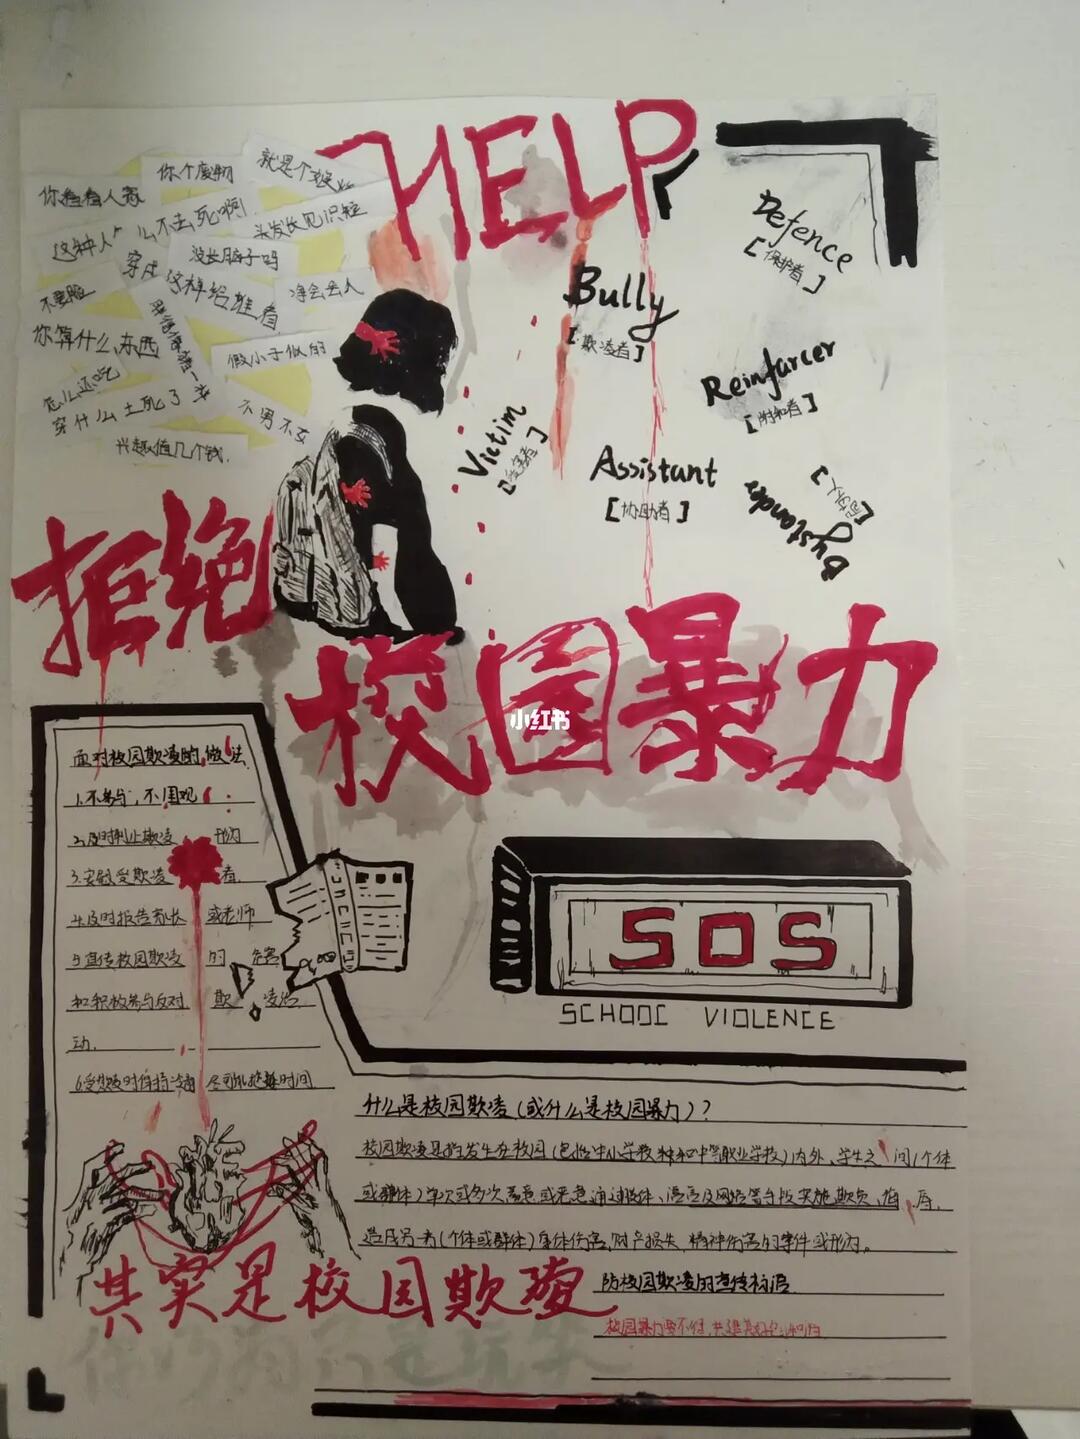 HELP
你看看人家
你个废物
就是个
这种人
么不去死啊
头发长见识短
没长脑子吗
穿成这样给谁看
净会丢人
不要脸
你算什么东西
假小子似的
怎么还吃
穿什么土死了
不男不女
兴趣值几个钱.
Defence
[保护者]
Bully
[欺凌者]
Reinfarcer
[附和者]
Victim
[受害者]
Assistant
[协助者]
Bystander
拒绝
校园暴力
小红书
面对校园欺凌的做法
1.不参与,不围观
2.及时制止欺凌 行为
3.安慰受欺凌 者.
4.及时报告家长 或老师
5.宣传校园欺凌 的 危害
和积极参与反对 欺 凌活
动.
6.受欺凌时保持冷静 尽可能拖延时间
SOS
SCHOOL VIOLENCE
什么是校园欺凌(或什么是校园暴力)?
校园欺凌是指发生在校园(包括中小学校和中等职业学校)内外、学生之间(个体
或群体)单次或多次蓄意或恶意通过肢体、语言及网络等手段实施欺负、侮辱,
造成另一方(个体或群体)身体伤害,财产损失,精神伤害的事件或行为。
防校园欺凌的宣传标语
校园暴力要不得,共建美好
其实是校园欺凌
你以为